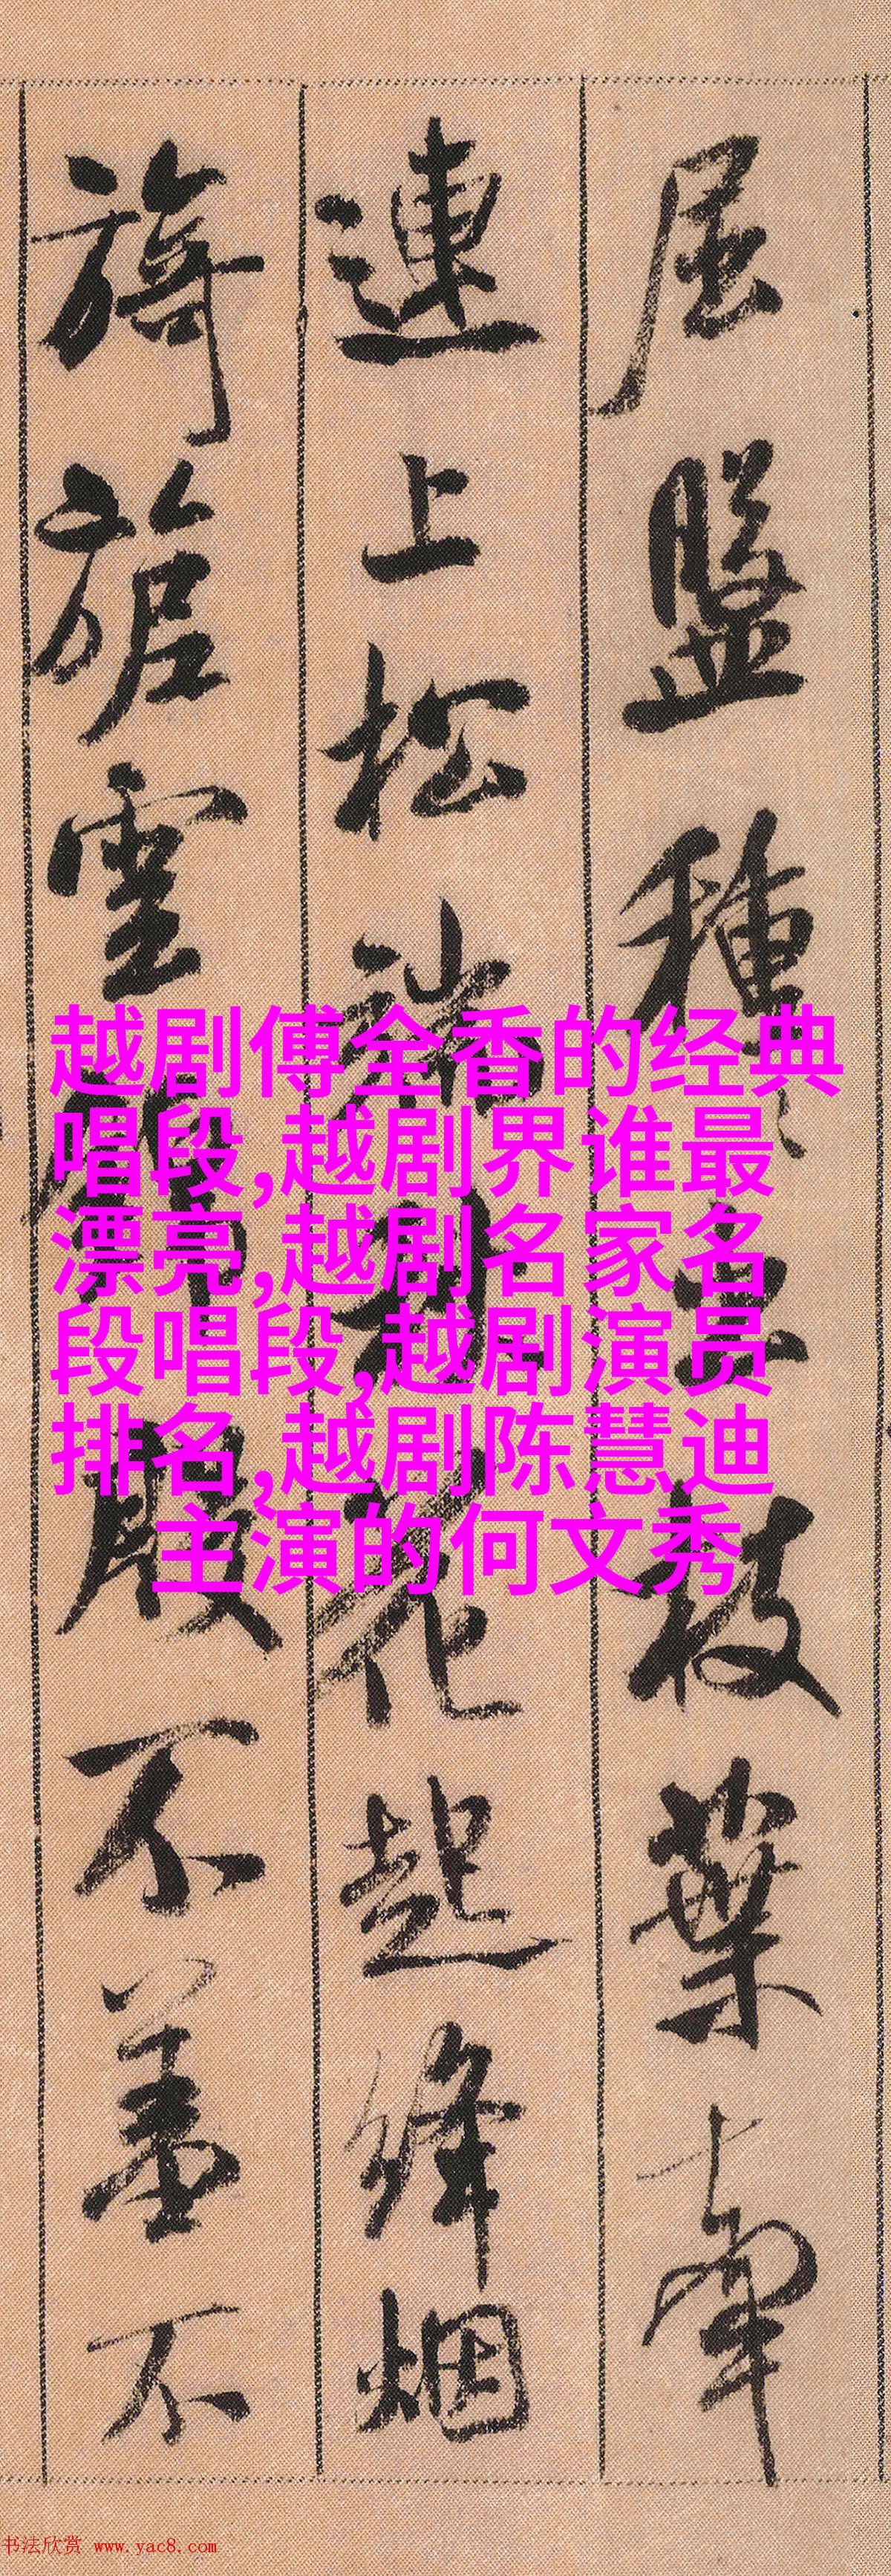 屈盤種
枝葉牽
連上松
花起絳烟
旖旎雲
不羞不
越剧傅全香的经典
唱段,越剧界谁最
漂亮,越剧名家名
段唱段,越剧演员
排名,越剧陈慧迪
主演的何文秀
书法欣赏 www.yac8.com